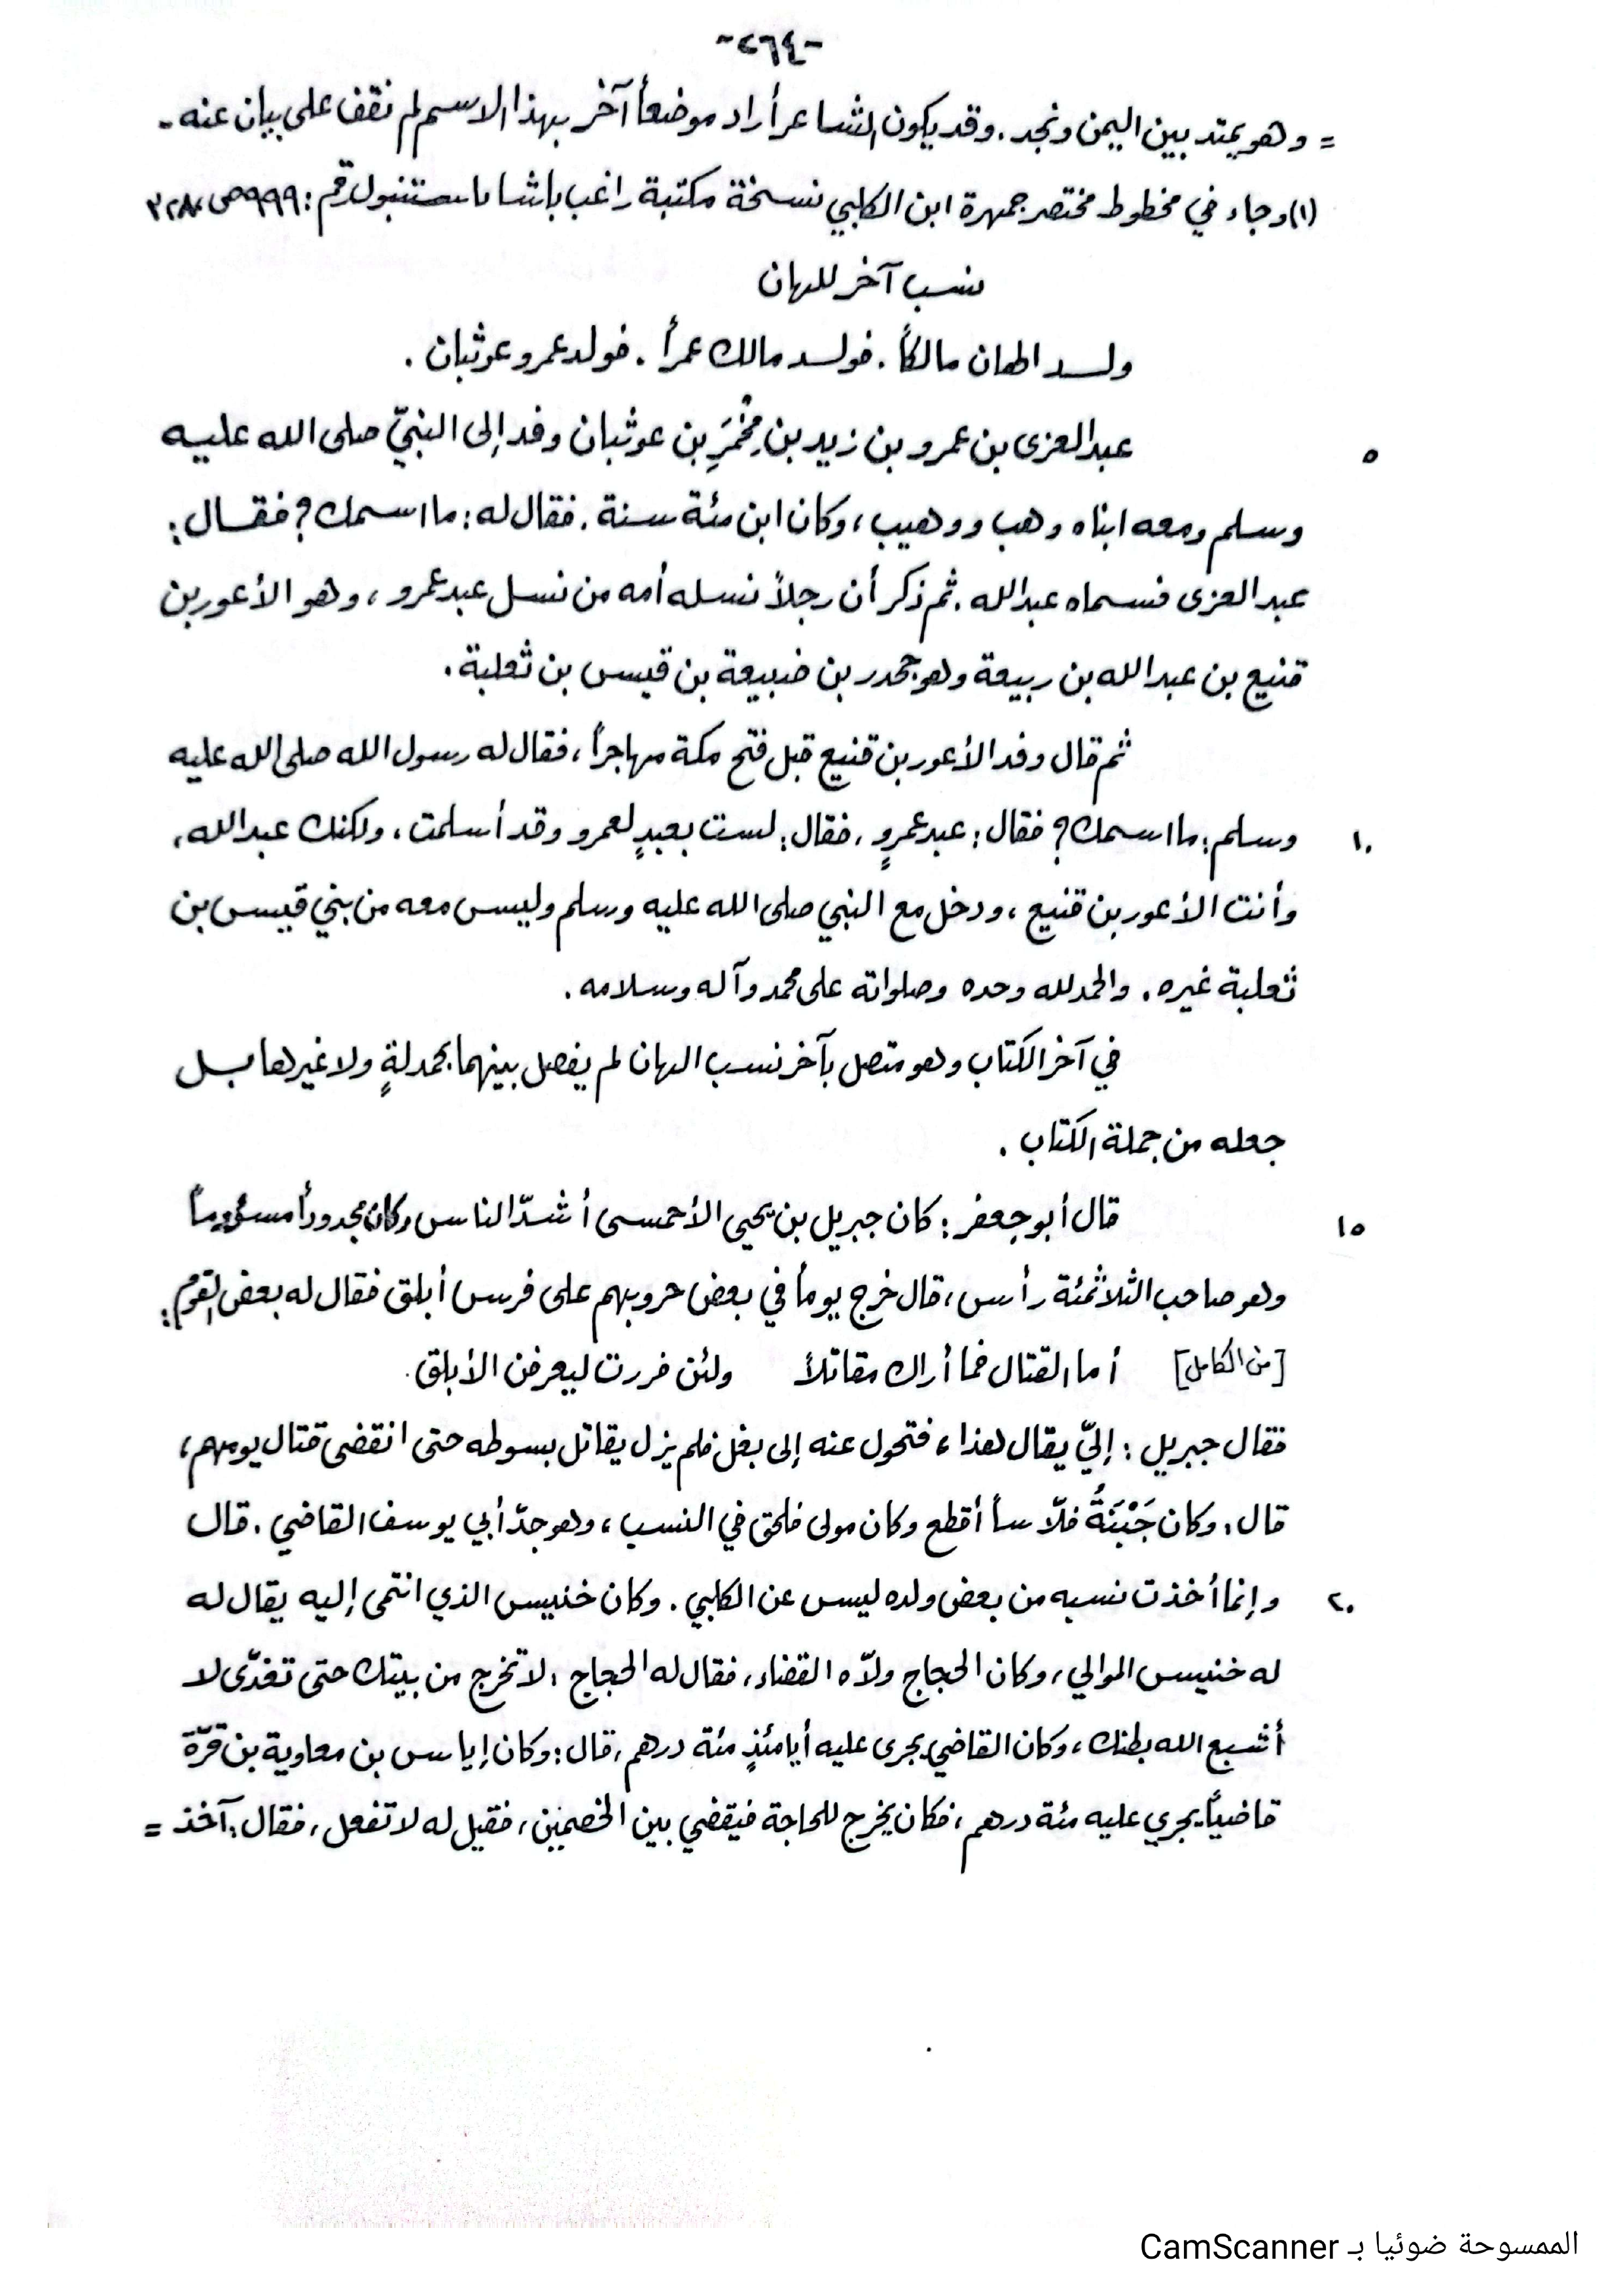 -٢٦٤-
= وهو يمتد بين اليمن ونجد. وقد يكون الشاعر أراد موضعاً آخر بهذا الاسم لم نقف على بيان عنه -
(١) وجاء في مخطوط مختصر جمهرة ابن الكلبي نسخة مكتبة راغب باشا باستنبول رقم: ٩٩٩ ص
نسب آخر للهان
ولد الهان مالكاً. فولد مالك عمراً. فولد عمرو عوثبان.
عبد العزى بن عمرو بن زيد بن مِخْمَرِ بن عوثبان وفد إلى النبيّ صلى الله عليه
٥
وسلم ومعه ابناه وهب ووهيب، وكان ابن مئة سنة. فقال له: ما اسمك؟ فقال:
عبد العزى فسماه عبدالله. ثم ذكر أن رجلاً نسله أمه من نسل عبد عمرو، وهو الأعور بن
قنيع بن عبد الله بن ربيعة وهو جحدر بن ضبيعة بن قيس بن ثعلبة.
ثم قال وفد الأعور بن قنيع قبل فتح مكة مهاجراً، فقال له رسول الله صلى الله عليه
وسلم: ما اسمك؟ فقال: عبد عمروٍ. فقال: لست بعبدٍ لعمرو وقد أسلمت، ولكنك عبد الله،
١٠
وأنت الأعور بن قنيع، ودخل مع النبي صلى الله عليه وسلم وليس معه من بني قيس بن
ثعلبة غيره. والحمد لله وحده وصلواته على محمد وآله وسلامه.
في آخر الكتاب وهو متصل بآخر نسب الهان لم يفصل بينهما بحمدلةٍ ولا غيرها بل
جعله من جملة الكتاب.
قال أبو جعفر: كان جبريل بن يحيى الأحمسى أشدّ الناس وكان مجدوراً مسؤوماً
١٥
وهو صاحب الثلاثمئة رأس، قال خرج يوماً في بعض حروبهم على فرس أبلق فقال له بعض القوم:
[من الكامل] أما القتال فما أراك مقاتلاً ولئن فررت ليعرفن الأبلق.
فقال جبريل: إليّ يقال هذا، فتحول عنه إلى بغل فلم يزل يقاتل بسوطه حتى انقضى قتال يومهم،
قال: وكان جَبْنَةُ فلّاساً أقطع وكان مولى فلحق في النسب، وهو جدّ أبي يوسف القاضي. قال
وإنما أخذت نسبه من بعض ولده ليس عن الكلبي. وكان خنيس الذي انتمى إليه يقال له
٢٠
له خنيس الموالي، وكان الحجاج ولاّه القضاء، فقال له الحجاج: لا تخرج من بيتك حتى تغدّى لا
أشبع الله بطنك، وكان القاضي يجرى عليه أيامئذٍ مئة درهم، قال: وكان إياس بن معاوية بن قرّة
قاضياً يجري عليه مئة درهم، فكان يخرج للحاجة فيقضي بين الخصمين، فقيل له لا تفعل، فقال: آخذ =
الممسوحة ضوئيا بـ CamScanner